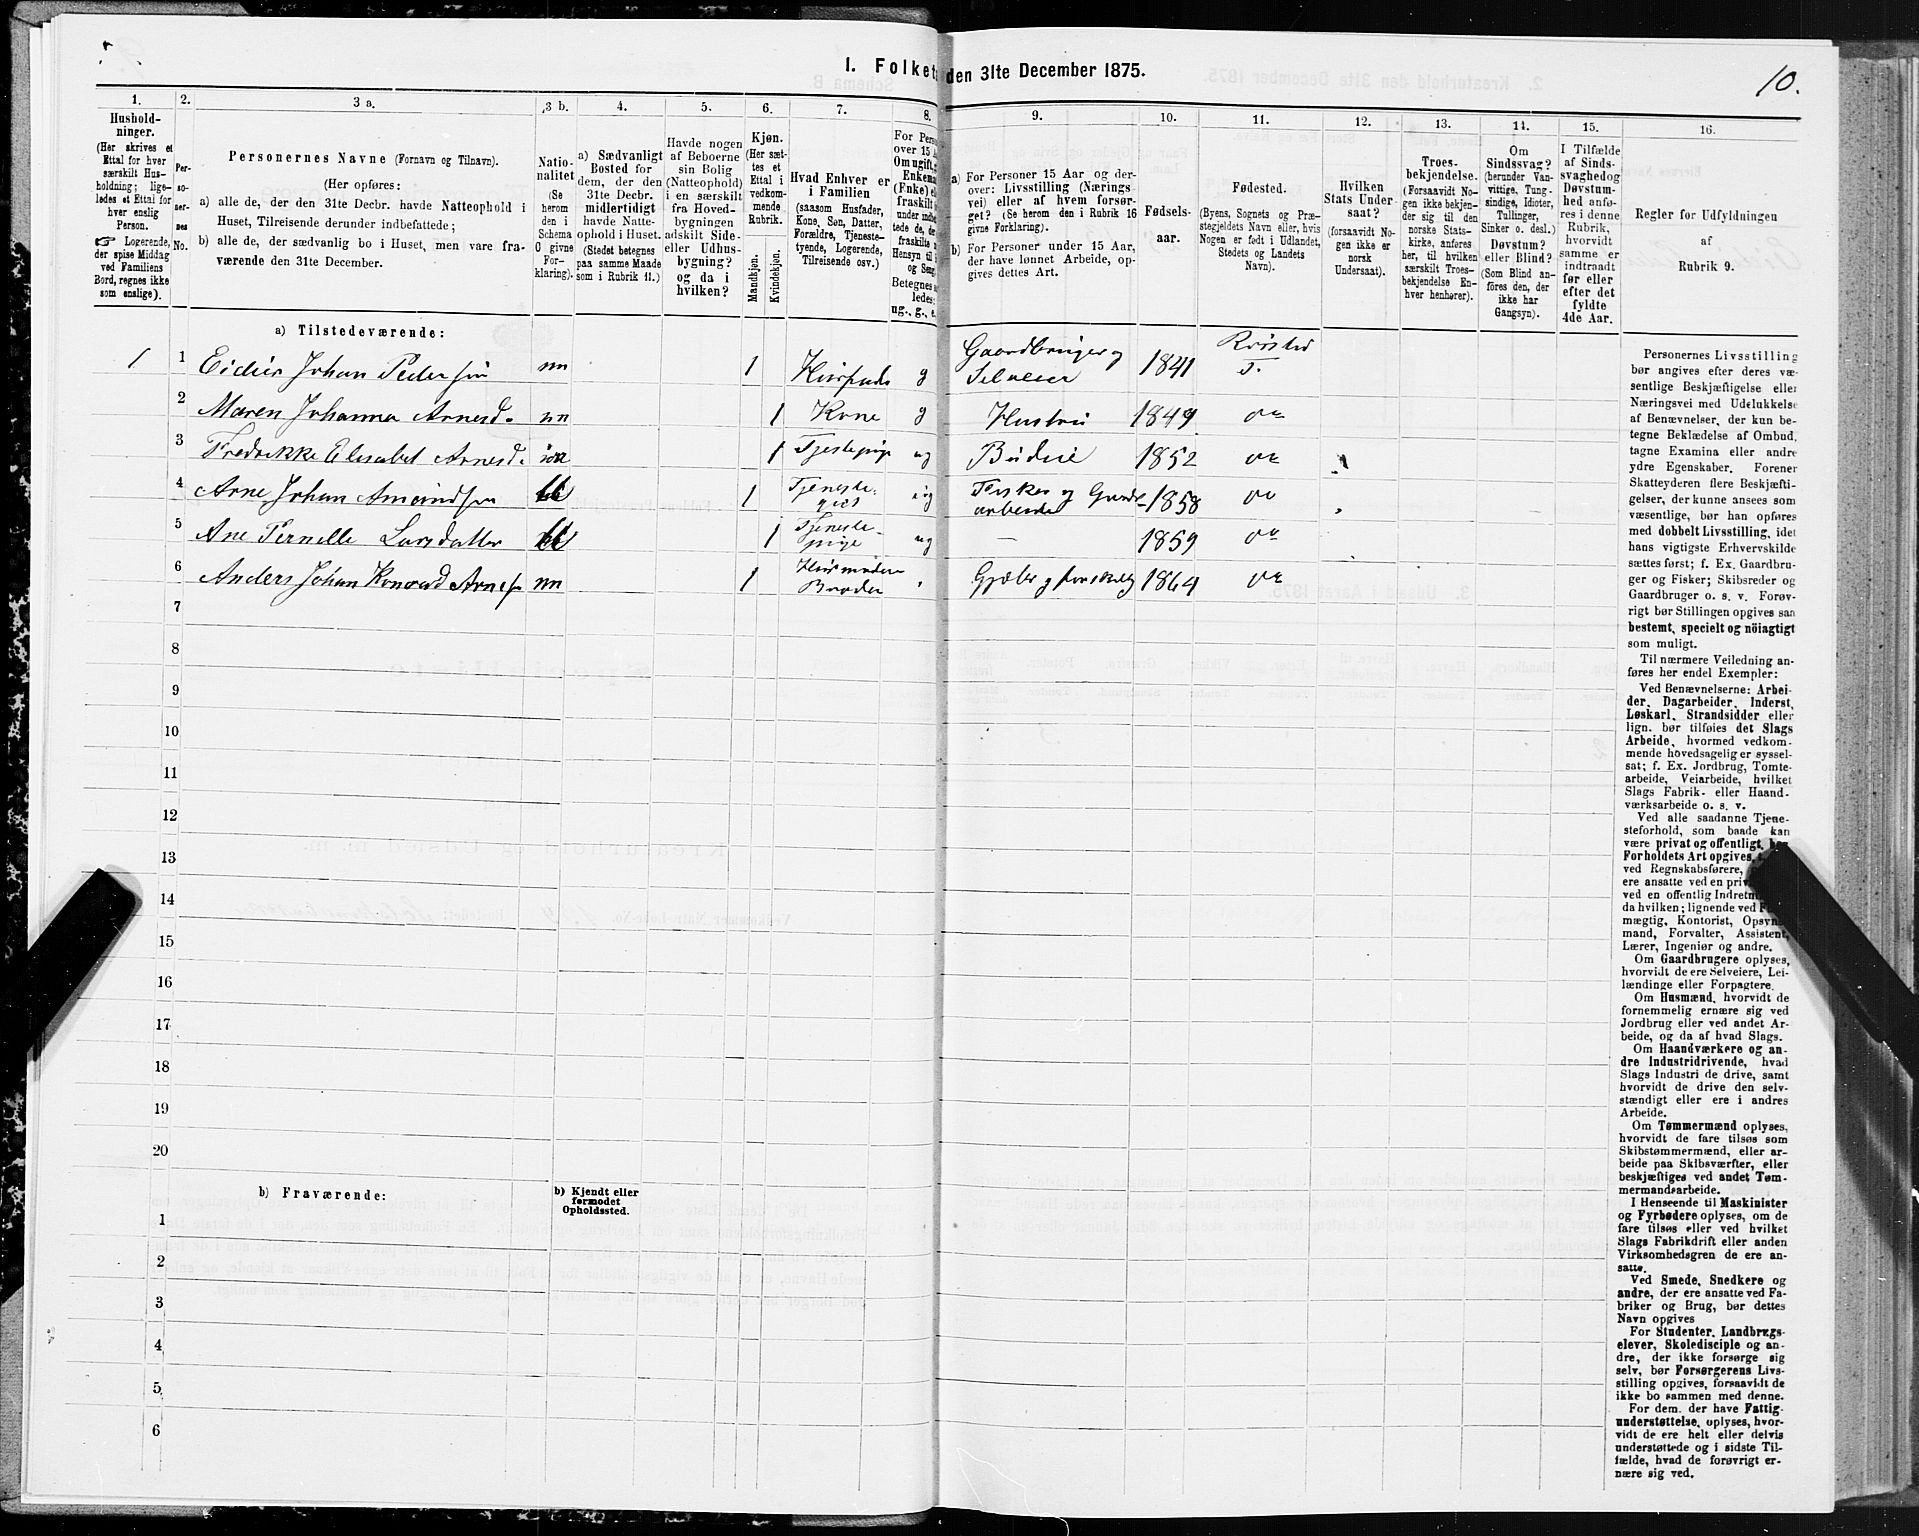 I. Folket den 31te December 1875.
10.
1.
Hushold-
ninger.
(Her skrives et
Ettal for hver
særskilt Hus-
holdning; lige-
ledes et Ettal for
hver enslig
Person.
☞ Logerende,
der spise Middag
ved Familiens
Bord, regnes ikke
som enslige).
2.
Per-
so-
ner-
nes
No.
3 a.
Personernes Navne (Fornavn og Tilnavn).
(Her opføres:
a) alle de, der den 31te Decbr. havde Natteophold i
Huset, Tilreisende derunder indbefattede;
b) alle de, der sædvanlig bo i Huset, men vare fra-
værende den 31te December.
3 b.
Natio-
nalitet
(Se
herom
den i
Schema
C givne
For-
klaring).
4.
a) Sædvanligt
Bosted for
dem, der den
31te Decbr.
midlertidigt
havde Natte-
ophold i Huset.
(Stedet betegnes
paa samme Maade
som i Rubrik 11.)
5.
Havde nogen
af Beboerne
sin Bolig
(Natteophold)
i en særskilt
fra Hoved-
bygningen
adskilt Side-
eller Udhus-
bygning?
og da i
hvilken?
6.
Kjøn.
(Her sæt-
tes et
Ettal i
vedkom-
mende
Rubrik.
Mandkjøn.
Kvindekjøn.
7.
Hvad Enhver er
i Familien
(saasom Husfader,
Kone, Søn, Datter,
Forældre, Tjeneste-
tyende, Logerende,
Tilreisende osv.)
8.
For Pers
over 15 A
Om ugift,
Enkema
(Enke) el
fraskilt
under indbe
tede de, der
fraskilte
Hensyn til
og Seng.
Betegnes
ledes:
ug., g., e.
9.
a) For Personer 15 Aar og der-
over: Livsstilling (Nærings-
vei) eller af hvem forsør-
get? (Se herom den i Rubrik 16
givne Forklaring).
b) For Personer under 15 Aar,
der have lønnet Arbeide, op-
gives dettes Art.
10.
Fødsels-
aar.
11.
Fødested.
(Byens, Sognets og Præ-
stegjeldets Navn eller, hvis
Nogen er født i Udlandet,
Stedets og Landets
Navn).
12.
Hvilken
Stats Under-
saat?
(forsaavidt No-
gen ikke er
norsk
Undersaat).
13.
Troes-
bekjendelse.
(Forsaavidt No-
gen ikke bekjen-
der sig til den
norske Stats-
kirke, anføres
her, til hvilken
særskilt Troes-
bekjendelse En-
hver henhører).
14.
Om
Sindssvag?
(herunder Van-
vittige, Tung-
sindige, Idioter,
Tullinger,
Sinker o. desl.)
Døvstum?
eller Blind?
(Som Blind an-
føres den, der
ikke har
Gangsyn).
15.
I Tilfælde
af Sinds-
svaghedog
Døvstum-
hed anfø-
res i denne
Rubrik,
hvorvidt
samme er
indtraadt
før eller
efter det
fyldte
4de Aar.
16.
Regler for Udfyldningen
af
Rubrik 9.
a) Tilstedeværende:
1 1 Johan Pedersøn nn 1 g Gaardbruger og Selveier 1841
2 Maren Johanna Arnesd. nn 1 Kone g Hustru 1849
3 Fredrikke Elisabet Arnesd. 1 Tjenestepige ug Budeie 1852
4 Arne Johan 1 Tjeneste- ug Fisker og Gaards- arbeider 1858
5 Ane Pernelle Larsdatter 1 Tjeneste- pige ug — 1859
6 Anders Johan Konrad Arnes nn 1 Husmoders Broder Gjæter og 1864
7
8
9
10
11
12
13
14
15
16
17
18
19
20
b) Fraværende:
b) Kjendt eller
formodet
Opholdssted.
1
2
3
4
5
6
Personernes Livsstilling
bør angives efter deres væ-
sentlige Beskjæftigelse eller
Næringsvei med Udelukkelse
af Benævnelser, der kun be-
tegne Beklædelse af Ombud,
tagne Examina eller andre
ydre Egenskaber. Forener
Skatteyderen flere Beskjæfti-
gelser, der kunne ansees som
væsentlige, bør han opføres
med dobbelt Livsstilling, idet
hans vigtigste Erhvervskilde
sættes først; f. Ex. Gaardbru-
ger og Fisker; Skibsreder og
Gaardbruger o. s. v. Forøv-
rigt bør Stillingen opgives saa
bestemt, specielt og nöiagtigt
som muligt.
Til nærmere Veiledning an-
føres her endel Exempler:
Ved Benævnelserne: Arbei-
der, Dagarbeider, Inderst,
Løskarl, Strandsidder eller
lign. bør tilføies det Slags
Arbeide, hvormed vedkom-
mende hovedsagelig er syssel-
sat; f. Ex. Jordbrug, Tomte-
arbeide, Veiarbeide, hvilket
Slags Fabrik- eller Haand-
værksarbeide o. s. v.
Ved alle saadanne Tjene-
steforhold, som baade kan
være privat og offentligt, bør
Forholdets Art opgives,
ved Regnskabsførere,
ere ansatte ved en priv
ved en offentlig Indretn
da hvilken; lignende ved F
mægtig, Kontorist, Opsyns-
mand, Forvalter, Assistent,
Lærer, Ingeniør og andre.
Om Gaardbrugere oplyses,
hvorvidt de ere Selveiere, Lei-
lændinge eller Forpagtere.
Om Husmænd, hvorvidt de
fornemmelig ernære sig ved
Jordbrug eller ved andet Ar-
beide, og da af hvad Slags.
Om Haandværkere og an-
dre Industridrivende, hvad
Slags Industri de drive, samt
hvorvidt de drive den selv-
stændigt eller ere i andres
Arbeide.
Om Tømmermænd oplyses,
hvorvidt de fare tilsøs som
Skibstømmermænd, eller ar-
beide paa Skibsværfter, eller
beskjæftiges ved andet Tøm-
mermandsarbeide.
I Henseende til Maskinister
og Fyrbødere oplyses, om de
fare tilsøs eller ved hvilket
Slags Fabrikdrift eller anden
Virksomhedsgren de ere an-
satte.
Ved Smede, Snedkere og
andre, der ere ansatte ved Fa-
briker og Brug, bør dettes
Navn opgives
For Studenter, Landbrugs-
elever, Skoledisciple og an-
dre, der ikke forsørge sig
selv, bør Forsørgerens Livs-
stilling opgives, forsaavidt de
ikke bo sammen med denne.
For dem, der have Fattig-
understøttelse, oplyses, hvor-
vidt de ere helt eller delvis
understøttede og i sidste Til-
fælde, hvad de forøvrigt er-
nære sig ved.